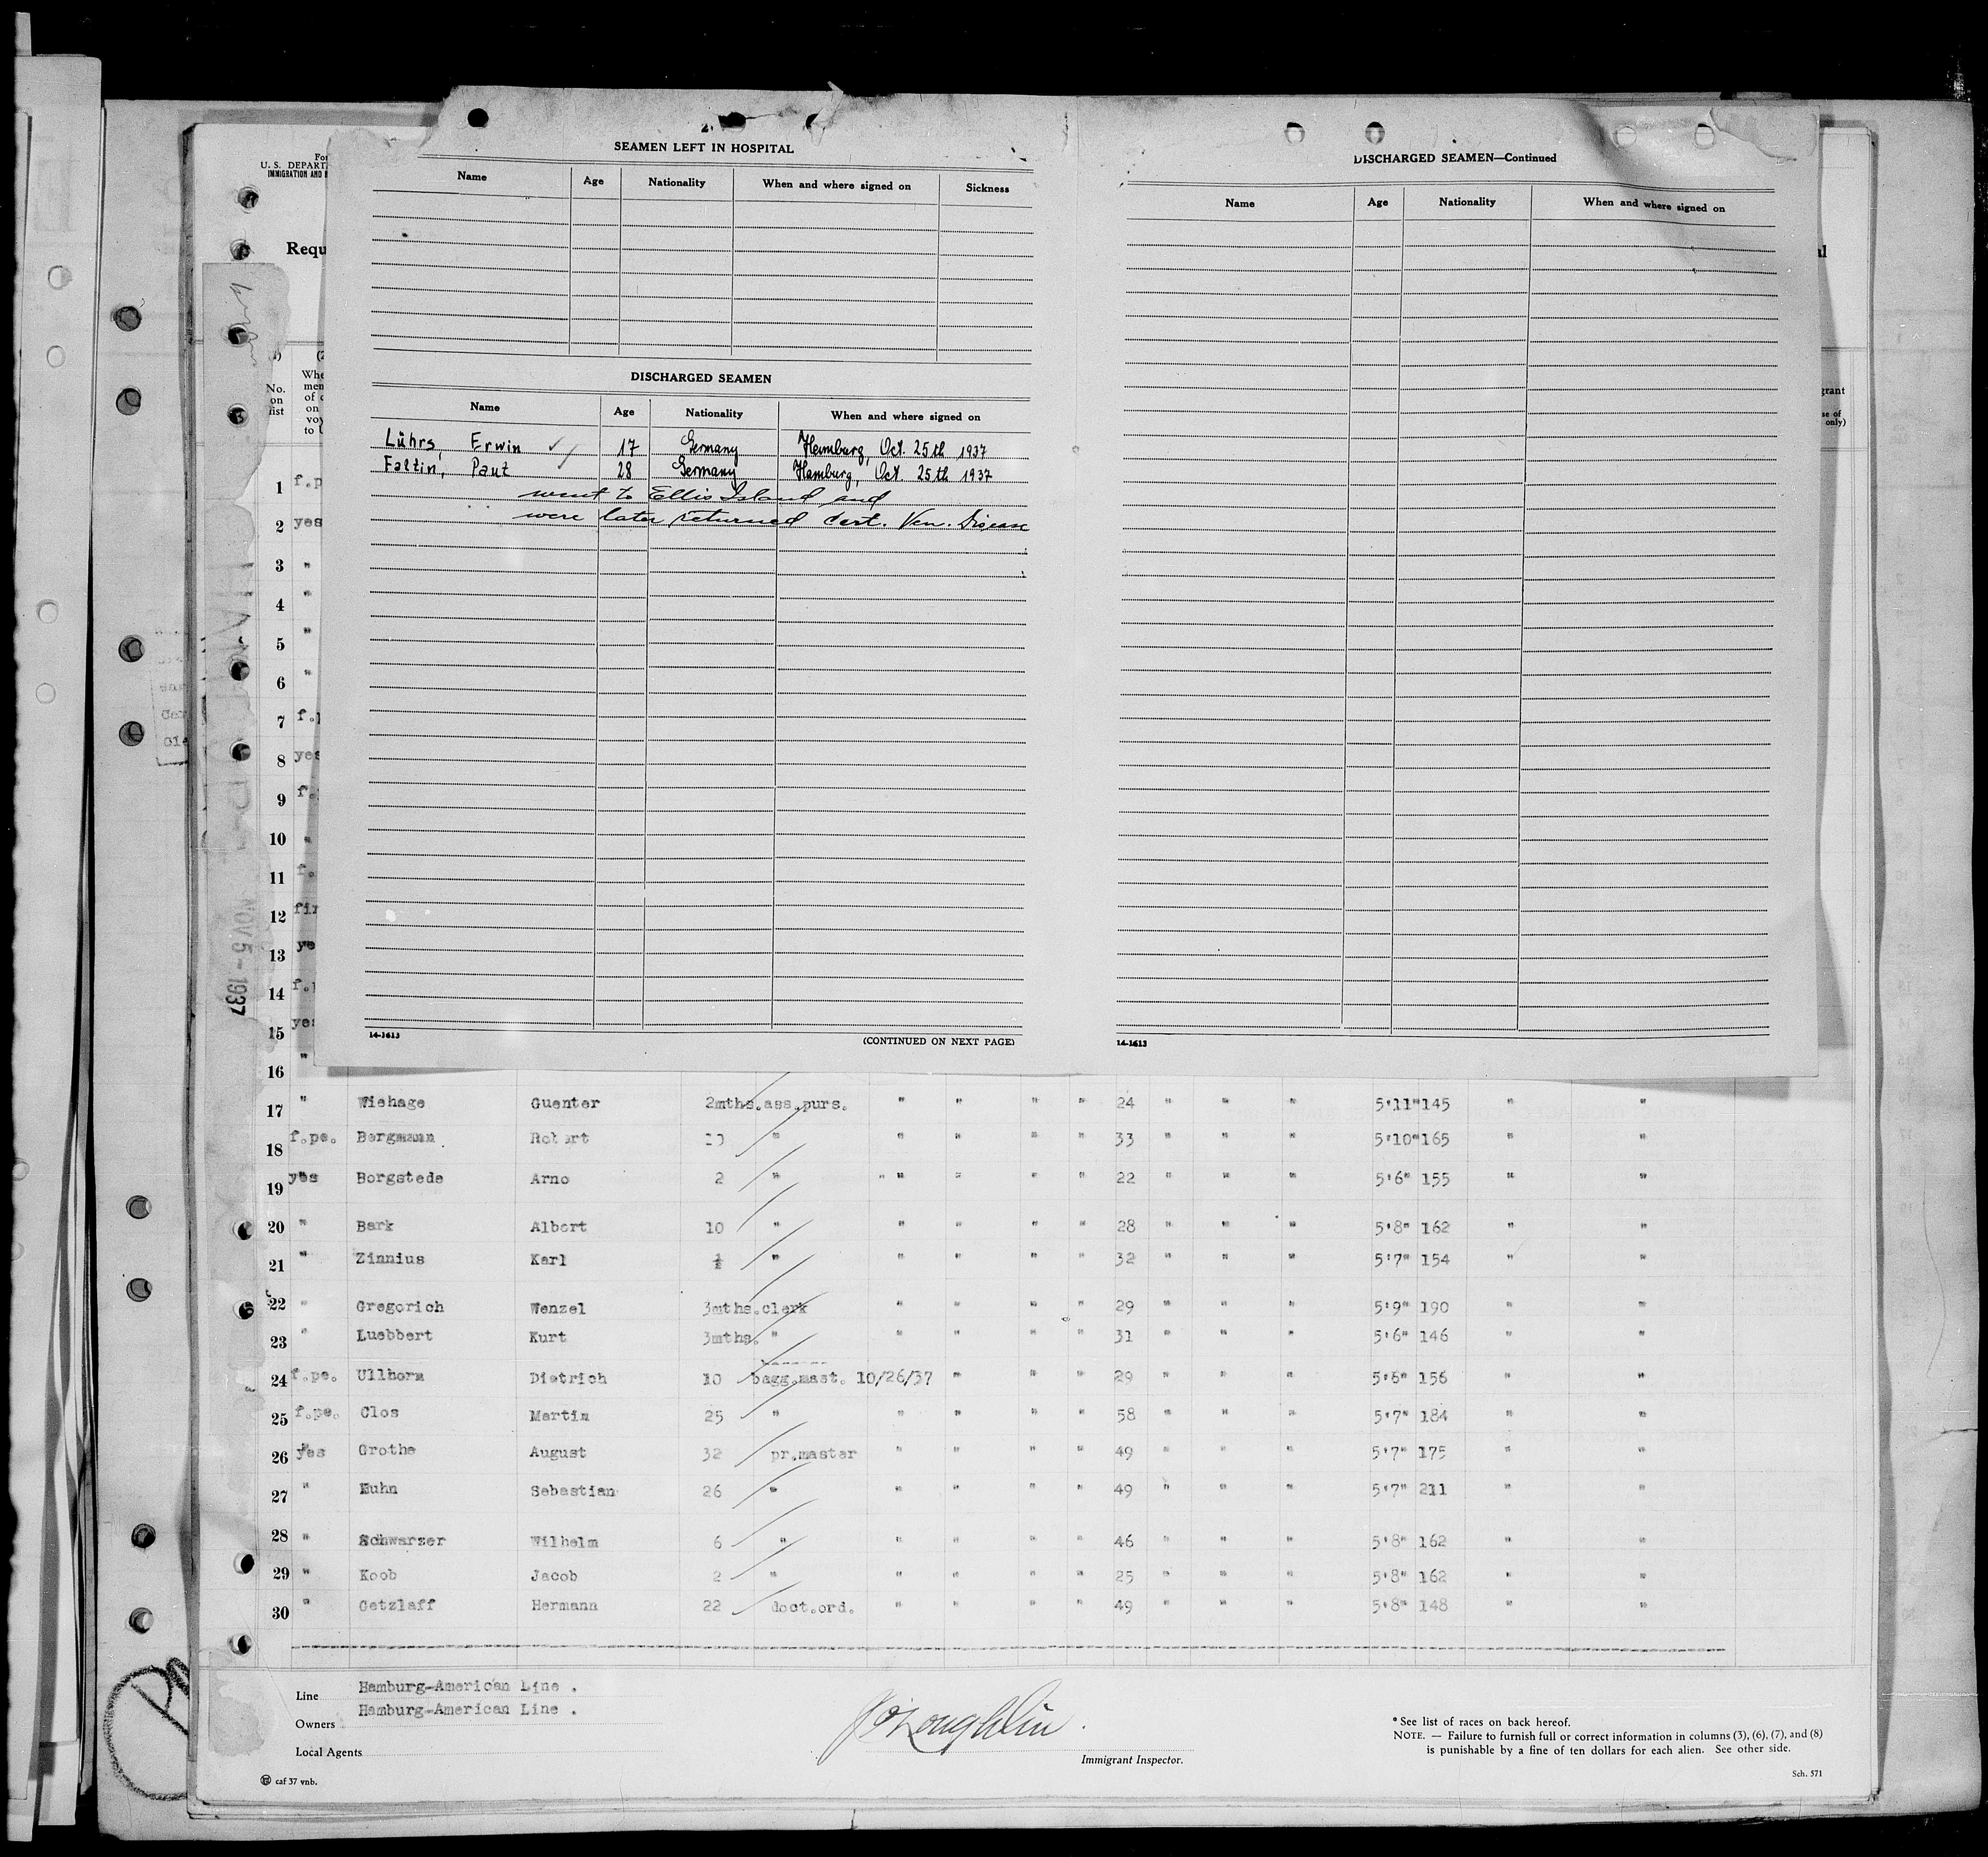 SEAMEN LEFT IN HOSPITAL
Name Age Nationality When and where signed on Sickness
DISCHARGED SEAMEN
Name Age Nationality When and where signed on
Lührs, Erwin ✓ 17 Germany Hamburg, Oct. 25th 1937
Faltin, Paul ✓ 28 Germany Hamburg, Oct. 25th 1937
went to Ellis Island and
were later returned Cert. Ven. Disease
14-1613 (CONTINUED ON NEXT PAGE)
DISCHARGED SEAMEN—Continued
Name Age Nationality When and where signed on
14-1613
U. S. DEPART
IMMIGRATION AND
Requ
No.
on
list
Whe
men
of
on
voy
to
1 f.p
2 yes
3 "
4 "
5 "
6 "
7 f.
8 yes
9 f.
10 "
11 f.
12 fir
13 ye
14 f.
15 yes
16 "
NOV 5 - 1937
17 " Wiehage Guenter 2mths. ass.purs. " " " " 24 " " " 5'11" 145 " "
18 f.pe. Bergmann Robert " " " " " 33 " " " 5'10" 165 " "
19 yes Borgstede Arno 2 " " " " " 22 " " " 5'6" 155 " "
20 " Bark Albert 10 " " " " " 28 " " " 5'8" 162 " "
21 " Zinnius Karl ½ " " " " " 32 " " " 5'7" 154 " "
22 " Gregorich Wenzel 3mths. clerk " " " " 29 " " " 5'9" 190 " "
23 " Luebbert Kurt 3mths. " " " " " 31 " " " 5'6" 146 " "
24 f.pe. Ullhorn Dietrich 10 bagg.mast. 10/26/37 " " " 29 " " " 5'6" 156 " "
25 f.pe. Clos Martin 25 " " " " " 58 " " " 5'7" 184 " "
26 yes Grothe August 32 pr.master " " " " 49 " " " 5'7" 175 " "
27 " Kuhn Sebastian 26 " " " " " 49 " " " 5'7" 211 " "
28 " Schwarzer Wilhelm 6 " " " " " 46 " " " 5'8" 162 " "
29 " Koob Jacob 2 " " " " " 25 " " " 5'8" 162 " "
30 " Getzlaff Hermann 22 doct.ord. " " " " 49 " " " 5'8" 148 " "
Line Hamburg-American Line .
Owners Hamburg-American Line .
Local Agents
J O'Loughlin.
Immigrant Inspector.
*See list of races on back hereof.
NOTE. — Failure to furnish full or correct information in columns (3), (6), (7), and (8)
is punishable by a fine of ten dollars for each alien. See other side.
caf 37 vnb.
Sch. 571